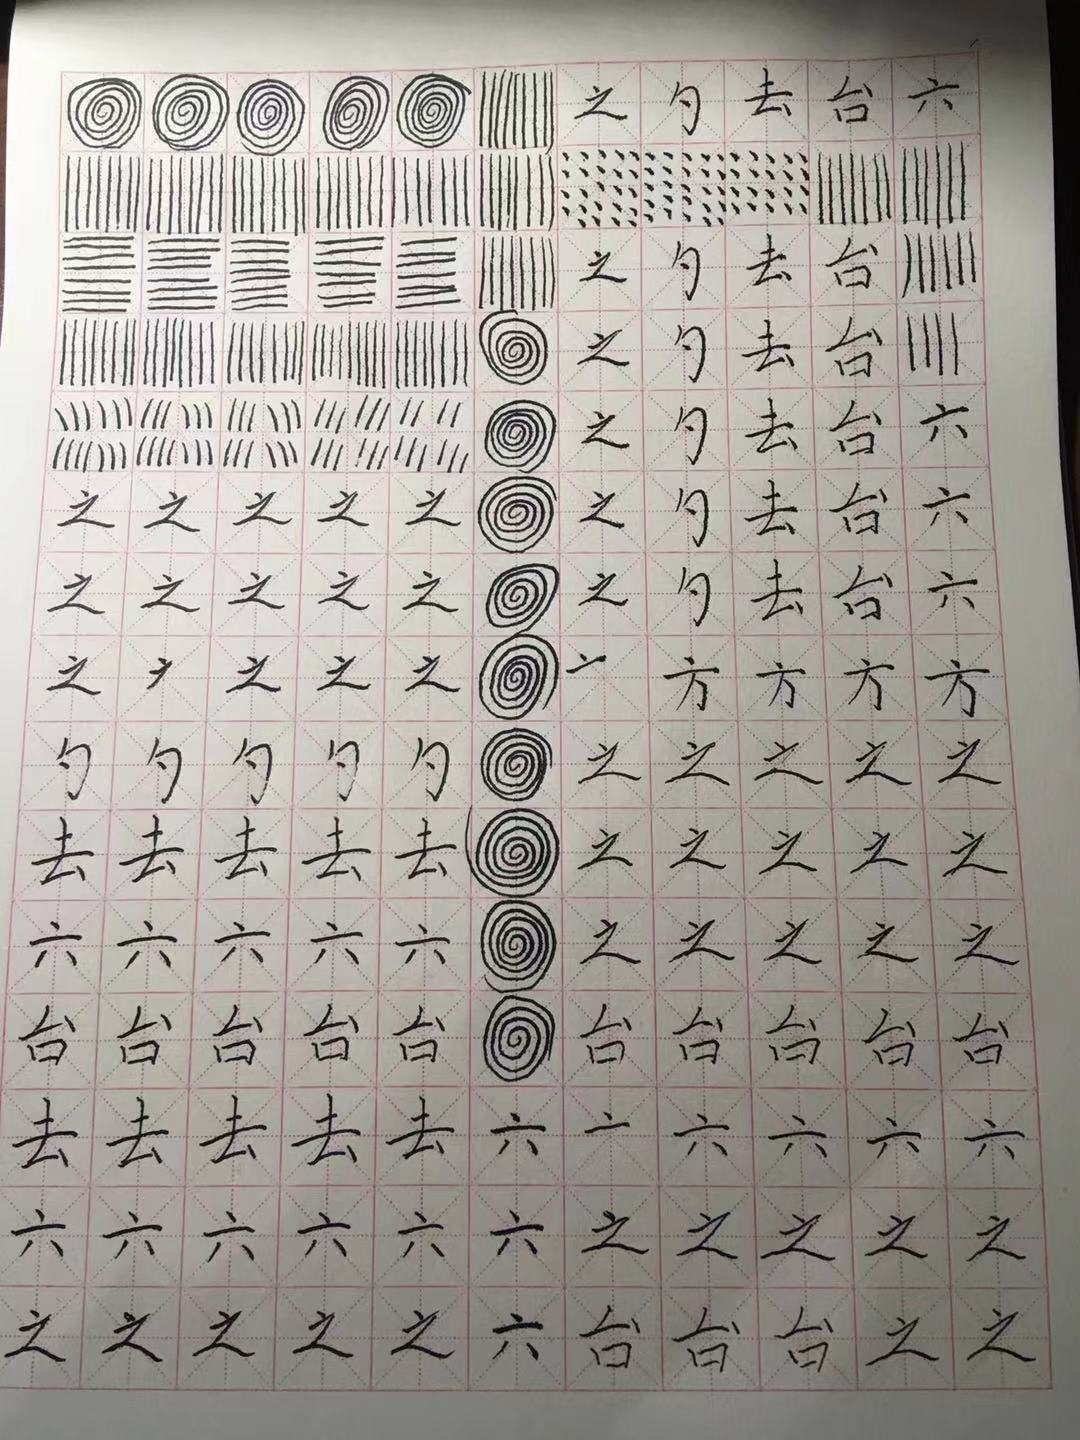 之 勺 去 台 六
之 勺 去 台
之 勺 去 台
之 勺 去 台 六
之 之 之 之 之 之 勺 去 台 六
之 之 之 之 之 之 勺 去 台 六
之 之 之 之 亠 方 方 方 方
勺 勺 勺 勺 勺 之 之 之 之 之
去 去 去 去 去 之 之 之 之 之
六 六 六 六 六 之 之 之 之 之
台 台 台 台 台 台 台 台 台 台
去 去 去 去 去 六 亠 六 六 六 六
六 六 六 六 六 六 之 之 之 之 之
之 之 之 之 之 六 台 台 台 之 之